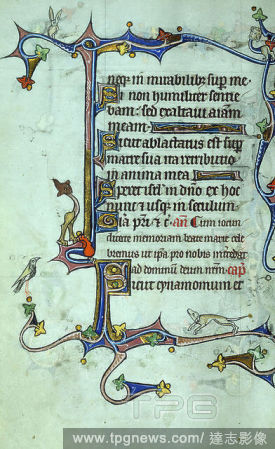 neq; in mirabilib; sup me
i non humiliter sentie
bam: sed exaltaui aīam
meam
Sicut ablactatus est sup
matre sua ita retributio
in anima mea
Speret isrł in dn̄o ex hoc
nunc ⁊ usq; in seculum
Glā pr̄i ⁊ c̄ añ Cum iocun
ditate memoriam beate marie cele
bremus ut ip̄a pro nobis
ad dominum deum
Sicut cynamomum et
TPG
www.tpgnews.com/達志影像